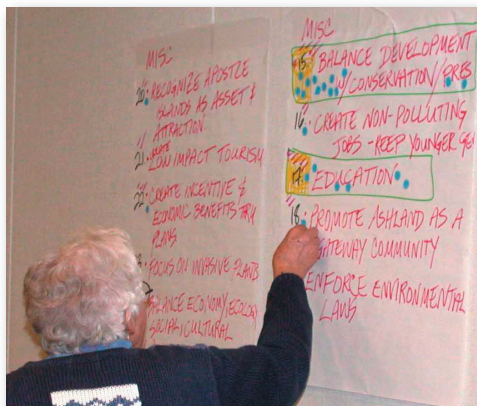 MISC
20. RECOGNIZE APOSTLE
ISLANDS AS ASSET &
ATTRACTION
21. LOW IMPACT TOURISM
22. CREATE INCENTIVE &
ECONOMIC BENEFITS
PLANS
FOCUS ON INVASIVE PLANTS
BALANCE ECONOMY/ECOLOGY
SOCIAL/CULTURAL
MISC
15. BALANCE DEVELOPMENT
W/CONSERVATION/PRES
16. CREATE NON-POLLUTING
JOBS - KEEP YOUNGER GEN
17. EDUCATION
18. PROMOTE ASHLAND AS A
GATEWAY COMMUNITY
ENFORCE ENVIRONMENTAL
LAWS